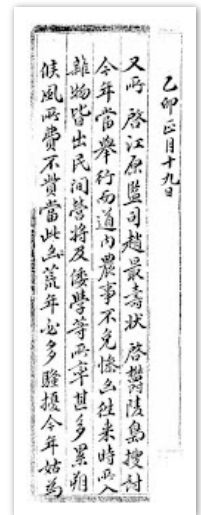 乙卯正月十九日
又所 啓江原監司趙最壽狀 啓鬱陵島搜討
今年當舉行而道内農事不免慘凶往来時所入
雜物皆出民間營將及倭學等所率甚多累朔
候風所費不貲當此凶荒年必多騷擾今年姑為